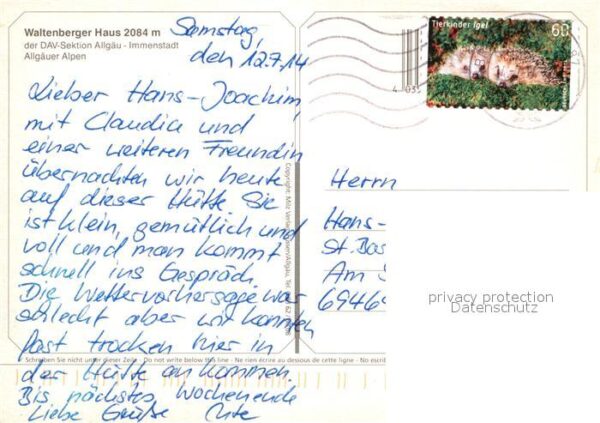 Waltenberger Haus 2084 m
der DAV-Sektion Allgäu - Immenstadt
Allgäuer Alpen
Samstag,
den 12.7.14
Lieber Hans-Joachim,
mit Claudia und
einer weiteren Freundin
übernachten wir heute
auf dieser Hütte. Sie
ist klein, gemütlich und
voll und man kommt
schnell ins Gespräch.
Die Wettervorhersage war
schlecht aber wir konnten
fast trocken hier in
der Hütte ankommen.
Bis nächstes Wochenende
Liebe Grüße Ute
Tierkinder Igel
60
Herrn
Hans-
St. Bas
Am
6946
Schreiben Sie nicht unter dieser Zeile - Do not write below this line - Ne rien écrire au dessous de cette ligne - No escrib
privacy protection
Datenschutz